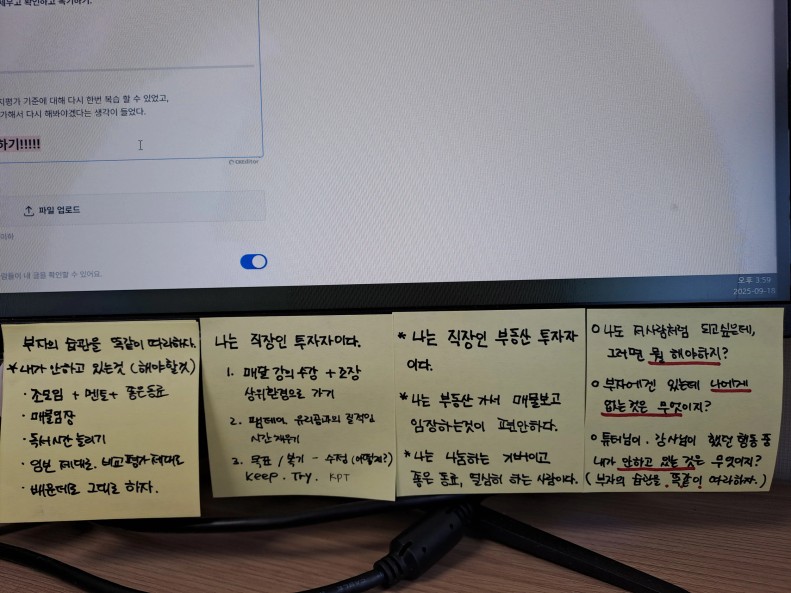 세우고 확인하고 복기하기.
치평가 기준에 대해 다시 한번 복습 할 수 있었고,
가해서 다시 해봐야겠다는 생각이 들었다.
하기!!!!!
파일 업로드
이하
사람들이 내 글을 확인할 수 있어요.
오후 3:59
2025-09-18
부자의 습관을 똑같이 따라하자.
* 내가 안하고 있는것 (해야할것)
· 조모임 + 멘토 + 좋은동료
· 매물임장
· 독서시간 늘리기
· 임보 제대로. 비교평가 제대로
· 배운대로 그대로 하자.
나는 직장인 투자자이다.
1. 매달 강의 수강 + 조장
상위환경으로 가기
2. 팸데이. 유리공과의 질적인
시간 채우기
3. 목표 / 복기 - 수정 (어떻게?)
Keep. Try. KPT
* 나는 직장인 부동산 투자자
이다.
* 나는 부동산 가서 매물보고
임장하는것이 편안하다.
* 나는 나눔하는 기버이고
좋은 동료, 열심히 하는 사람이다.
○ 나도 저사람처럼 되고싶은데,
그러면 뭘 해야하지?
○ 부자에겐 있는데 나에게
없는것은 무엇이지?
○ 튜터님이. 강사님이 했던 행동 중
내가 안하고 있는 것은 무엇이지?
( 부자의 습관을. 똑같이 따라하자. )